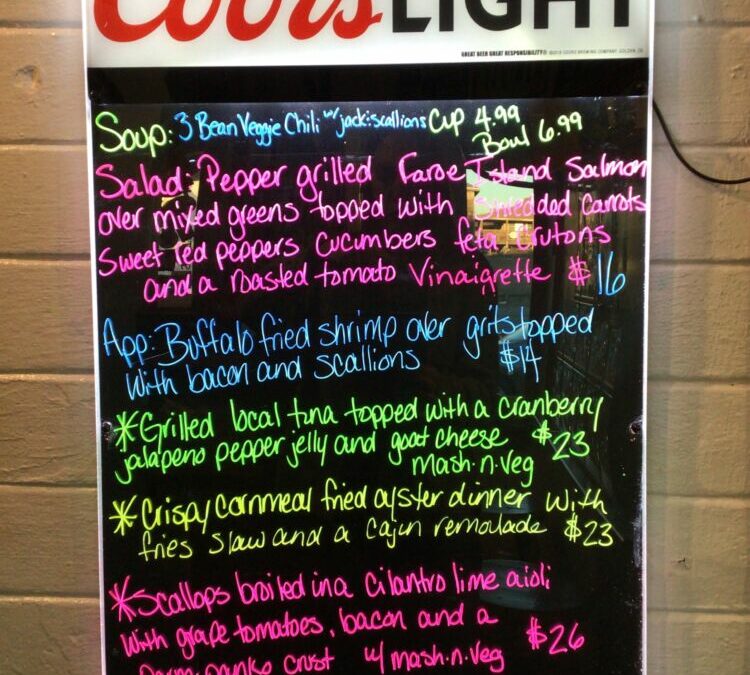 Coors LIGHT
GREAT BEER GREAT RESPONSIBILITY® ©2018 COORS BREWING COMPANY, GOLDEN, CO
Soup: 3 Bean Veggie Chili w/ jack:scallions Cup 4.99
Bowl 6.99
Salad: Pepper grilled Faroe Island Salmon
over mixed greens topped with Shredded Carrots
Sweet red peppers Cucumbers feta Crutons
and a roasted tomato Vinaigrette $16
App: Buffalo fried shrimp over grits topped
with bacon and scallions $14
*Grilled local tuna topped with a cranberry
jalapeno pepper jelly and goat cheese $23
mash-n-veg
*Crispy cornmeal fried oyster dinner with
fries slaw and a cajun remolade $23
*Scallops broiled in a cilantro lime aioli
with grape tomatoes, bacon and a $26
parm panko crust w/ mash-n-veg